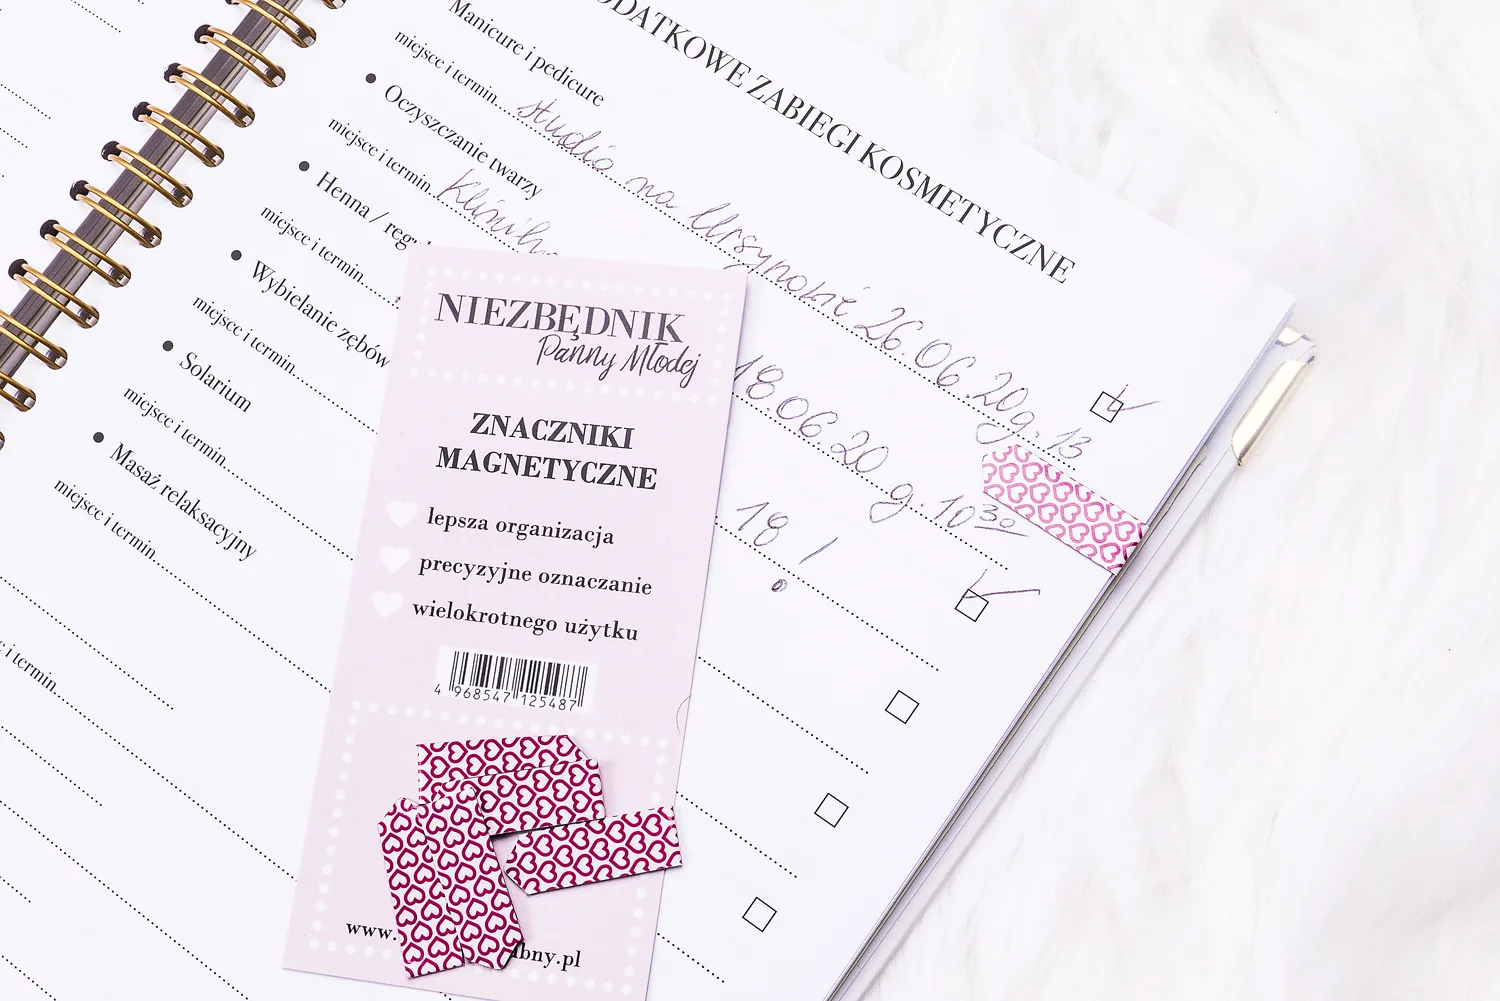 DODATKOWE ZABIEGI KOSMETYCZNE
Manicure i pedicure
miejsce i termin studio na Ursynowie 26.06.20 g. 13
Oczyszczanie twarzy
miejsce i termin Klinik 18.06.20 g. 10 30
Henna /
miejsce i termin 18 !
Wybielanie zębów
miejsce i termin
Solarium
miejsce i termin
Masaż relaksacyjny
miejsce i termin
i termin
NIEZBĘDNIK
Panny Młodej
ZNACZNIKI
MAGNETYCZNE
lepsza organizacja
precyzyjne oznaczanie
wielokrotnego użytku
4 968547 125487
www. bny.pl